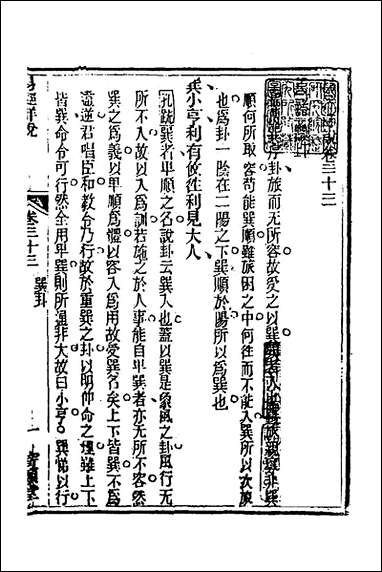 卷三十三
序卦旅而无所容故受之以巽巽者入也旅親寡非巽
順何所取容苟能巽順雖旅困之中何往而不能入巽所以次旅
也為卦一陰在二陽之下巽順於陽所以為巽也
巽小亨利有攸往利見大人
孔疏巽者卑順之名說卦云巽入也蓋以巽是象風之卦風行无
所不入故以入為訓若施之於人事能自卑巽者亦无所不容然
巽之為義以卑順為體以容入為用故受巽名矣上下皆巽不為
違逆君唱臣和教令乃行故於重巽之卦以明申命之理雖上下
皆巽命令可行然全用卑巽則所通非大故曰小亨巽悌以行
易經詳說 卷三十三 巽卦 一